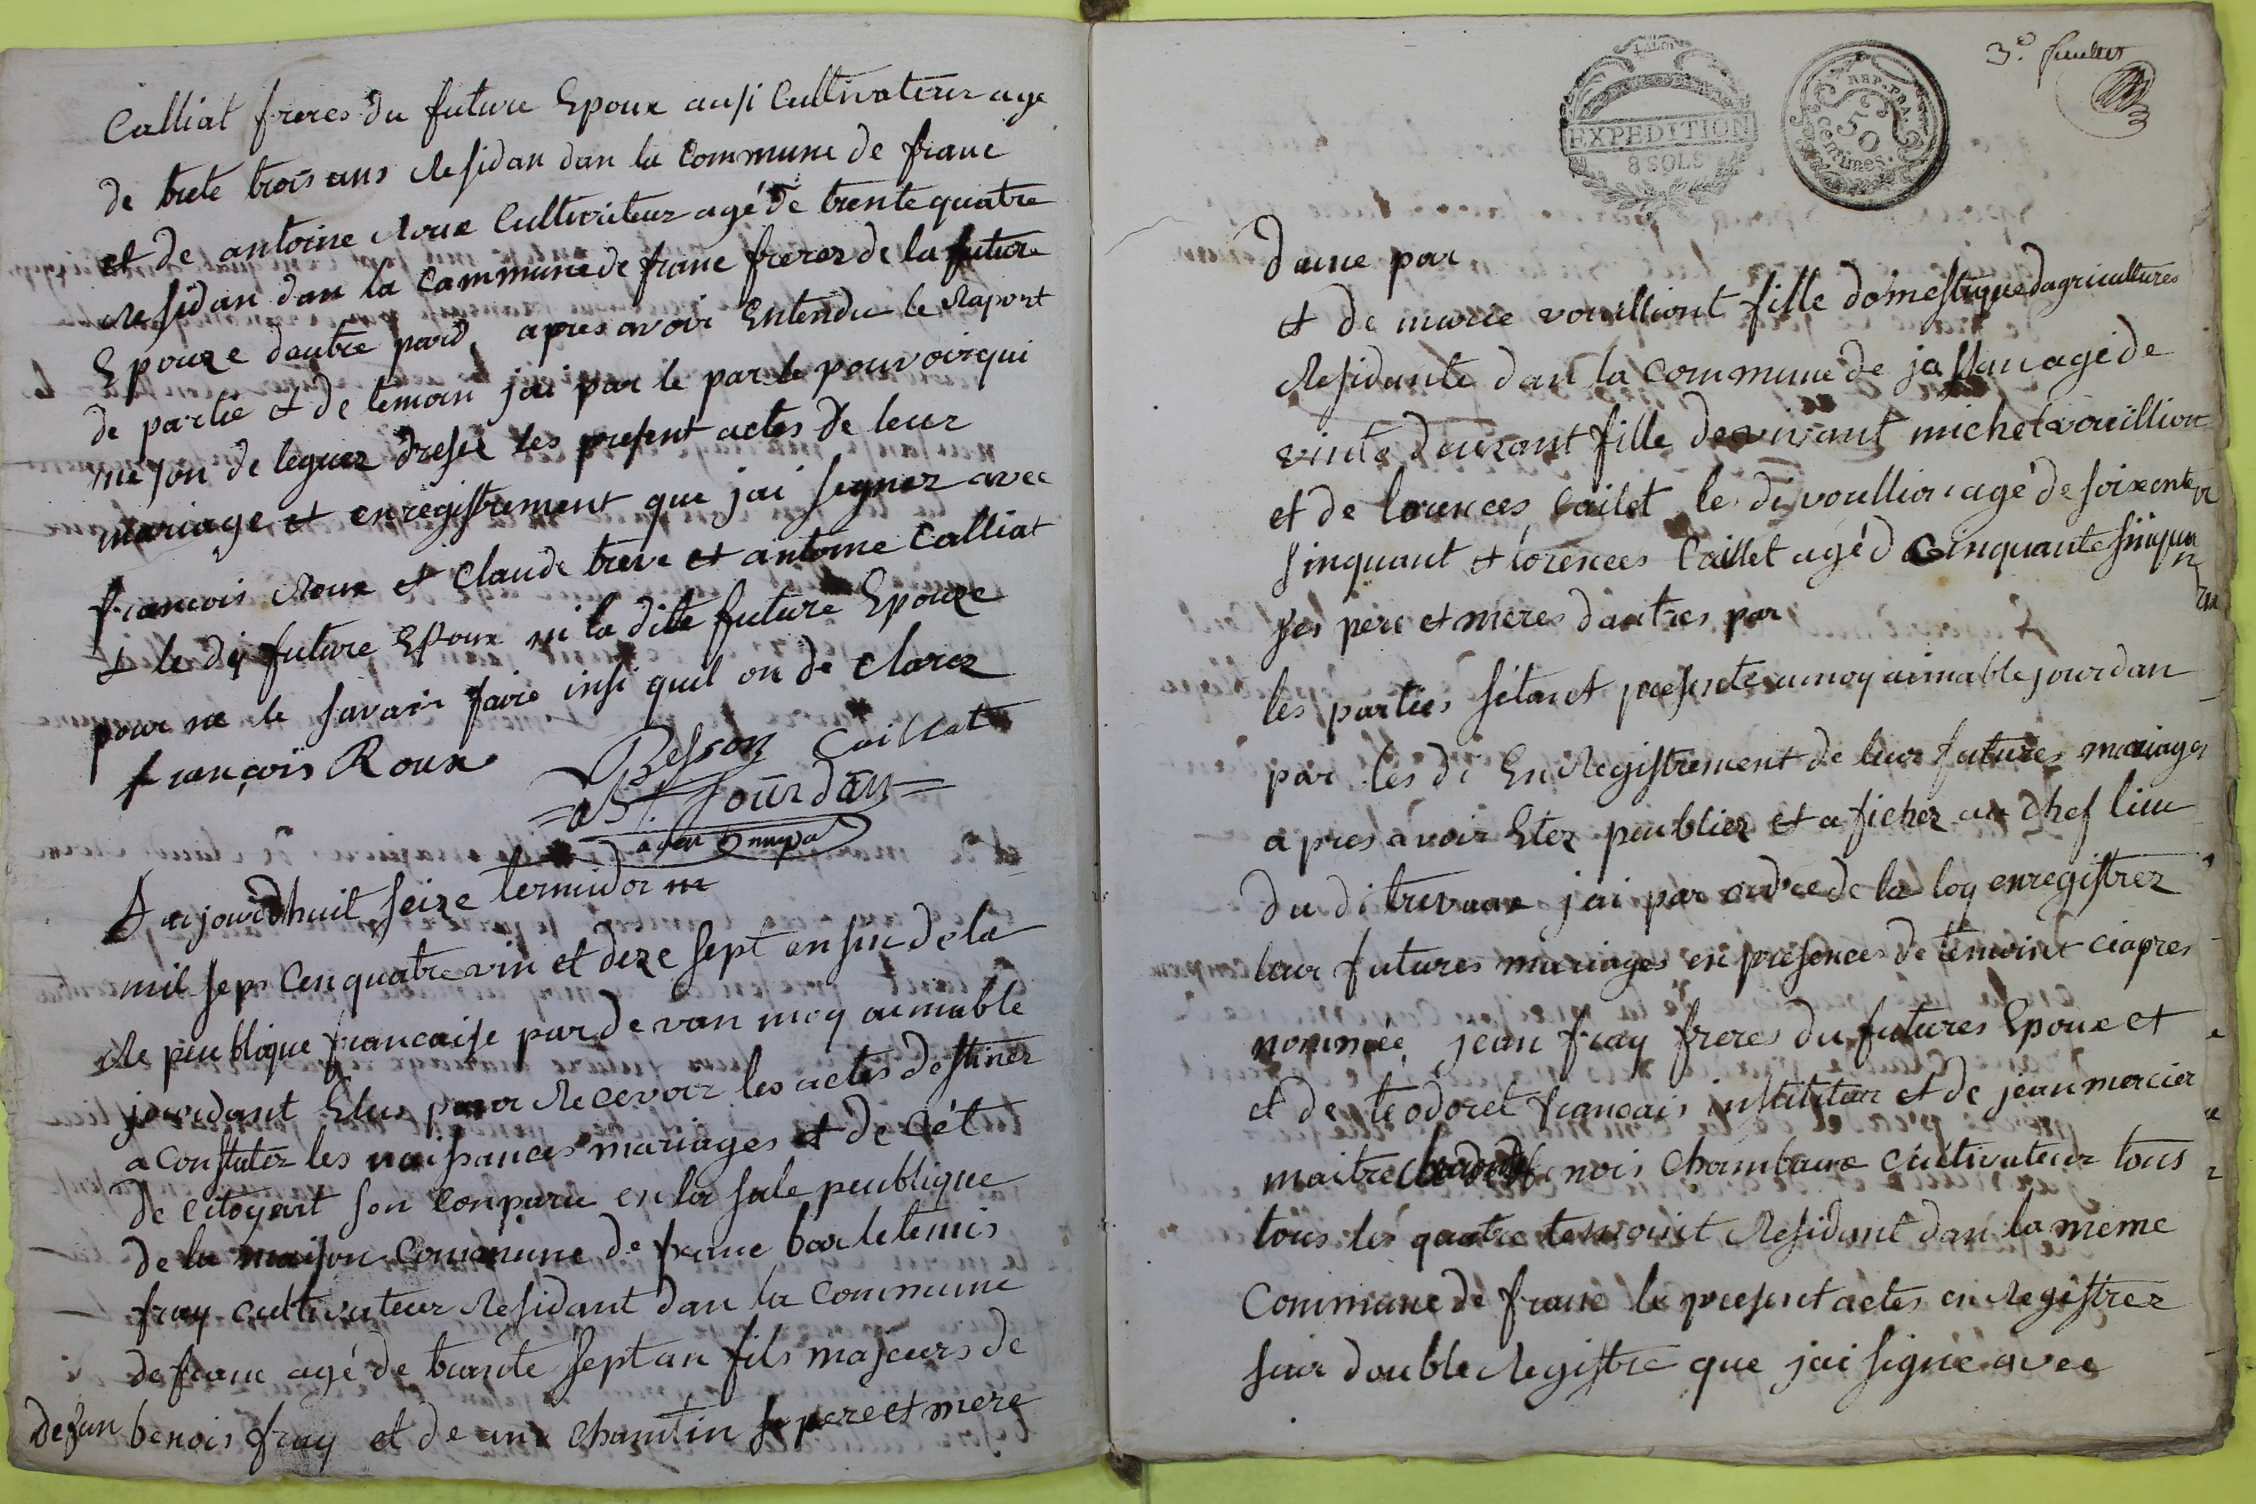 Calliat freres du future Epoux ausi Cultivateur age
de trete trois ans Residan dan la Commune de franc
et de antoine Roux Cultivateur agé de trente quatre
Residan dan la Commune de franc freres de la future
Epouze dautre pard, apres avoir Entendu le Raport
de partie et de temoin jai par le par le pouvoir qui
me son de leguez dresse les present actes de leur
mariage et enregistrement que jai signer avec
francois Roux et Claude treve et antoine Calliat
et le di future Epoux ni la dite future Epouze
pour ne le savair faire insi quil on de clarez
françois Roux
Besson Caillat
Jourdan
Aujourdhuit seize termidor
mil sept Cen quatre vin et deze sept an sin de la
Re peublique francaise par de van moy aimable
jourdant Elus pour Recevoir les actes destinez
a Constater les naissances mariages et de cét
de Citoyent son Conparu en la sale peublique
de la maison Commune de franc bartelemis
fray Cultivateur Residant dan la Commune
de franc agé de trante sept an fils majeurs de
defun benois fray et de ane chamtin se pere et mere
3e feuillet
EXPEDITION
8 SOLS
REP. FRA.
50
Centimes.
dune par
et de marie vouilliont fille domestique dagricultures
Residante dan la Commune de jassan agé de
vinte deuzant fille de vivant michel vouillion
et de lorences Cailet le di voullion agé de soixente
sinquant et lorences Caillet agé d Cinquante sinquan
ses pere et meres dautres par
les parties sitant presente a moy aimable jourdan
par les di Enregistrement de leur futures mariages
apres avoir Etez peubliez et a fichez au chef lieu
du di trevoux jai par ordre de la loy enregistrez
leur futures mariages en presences de temoint ciapres
nommée jean fray freres du futures Epoux et
et de teodoret francais instititeur et de jean mercier
maitre nois Chambaux Cultivateur tous
tous les quatre temoint Residant dan la meme
Commune de franc le present actes enregistrez
sur double Registre que jai signé avec